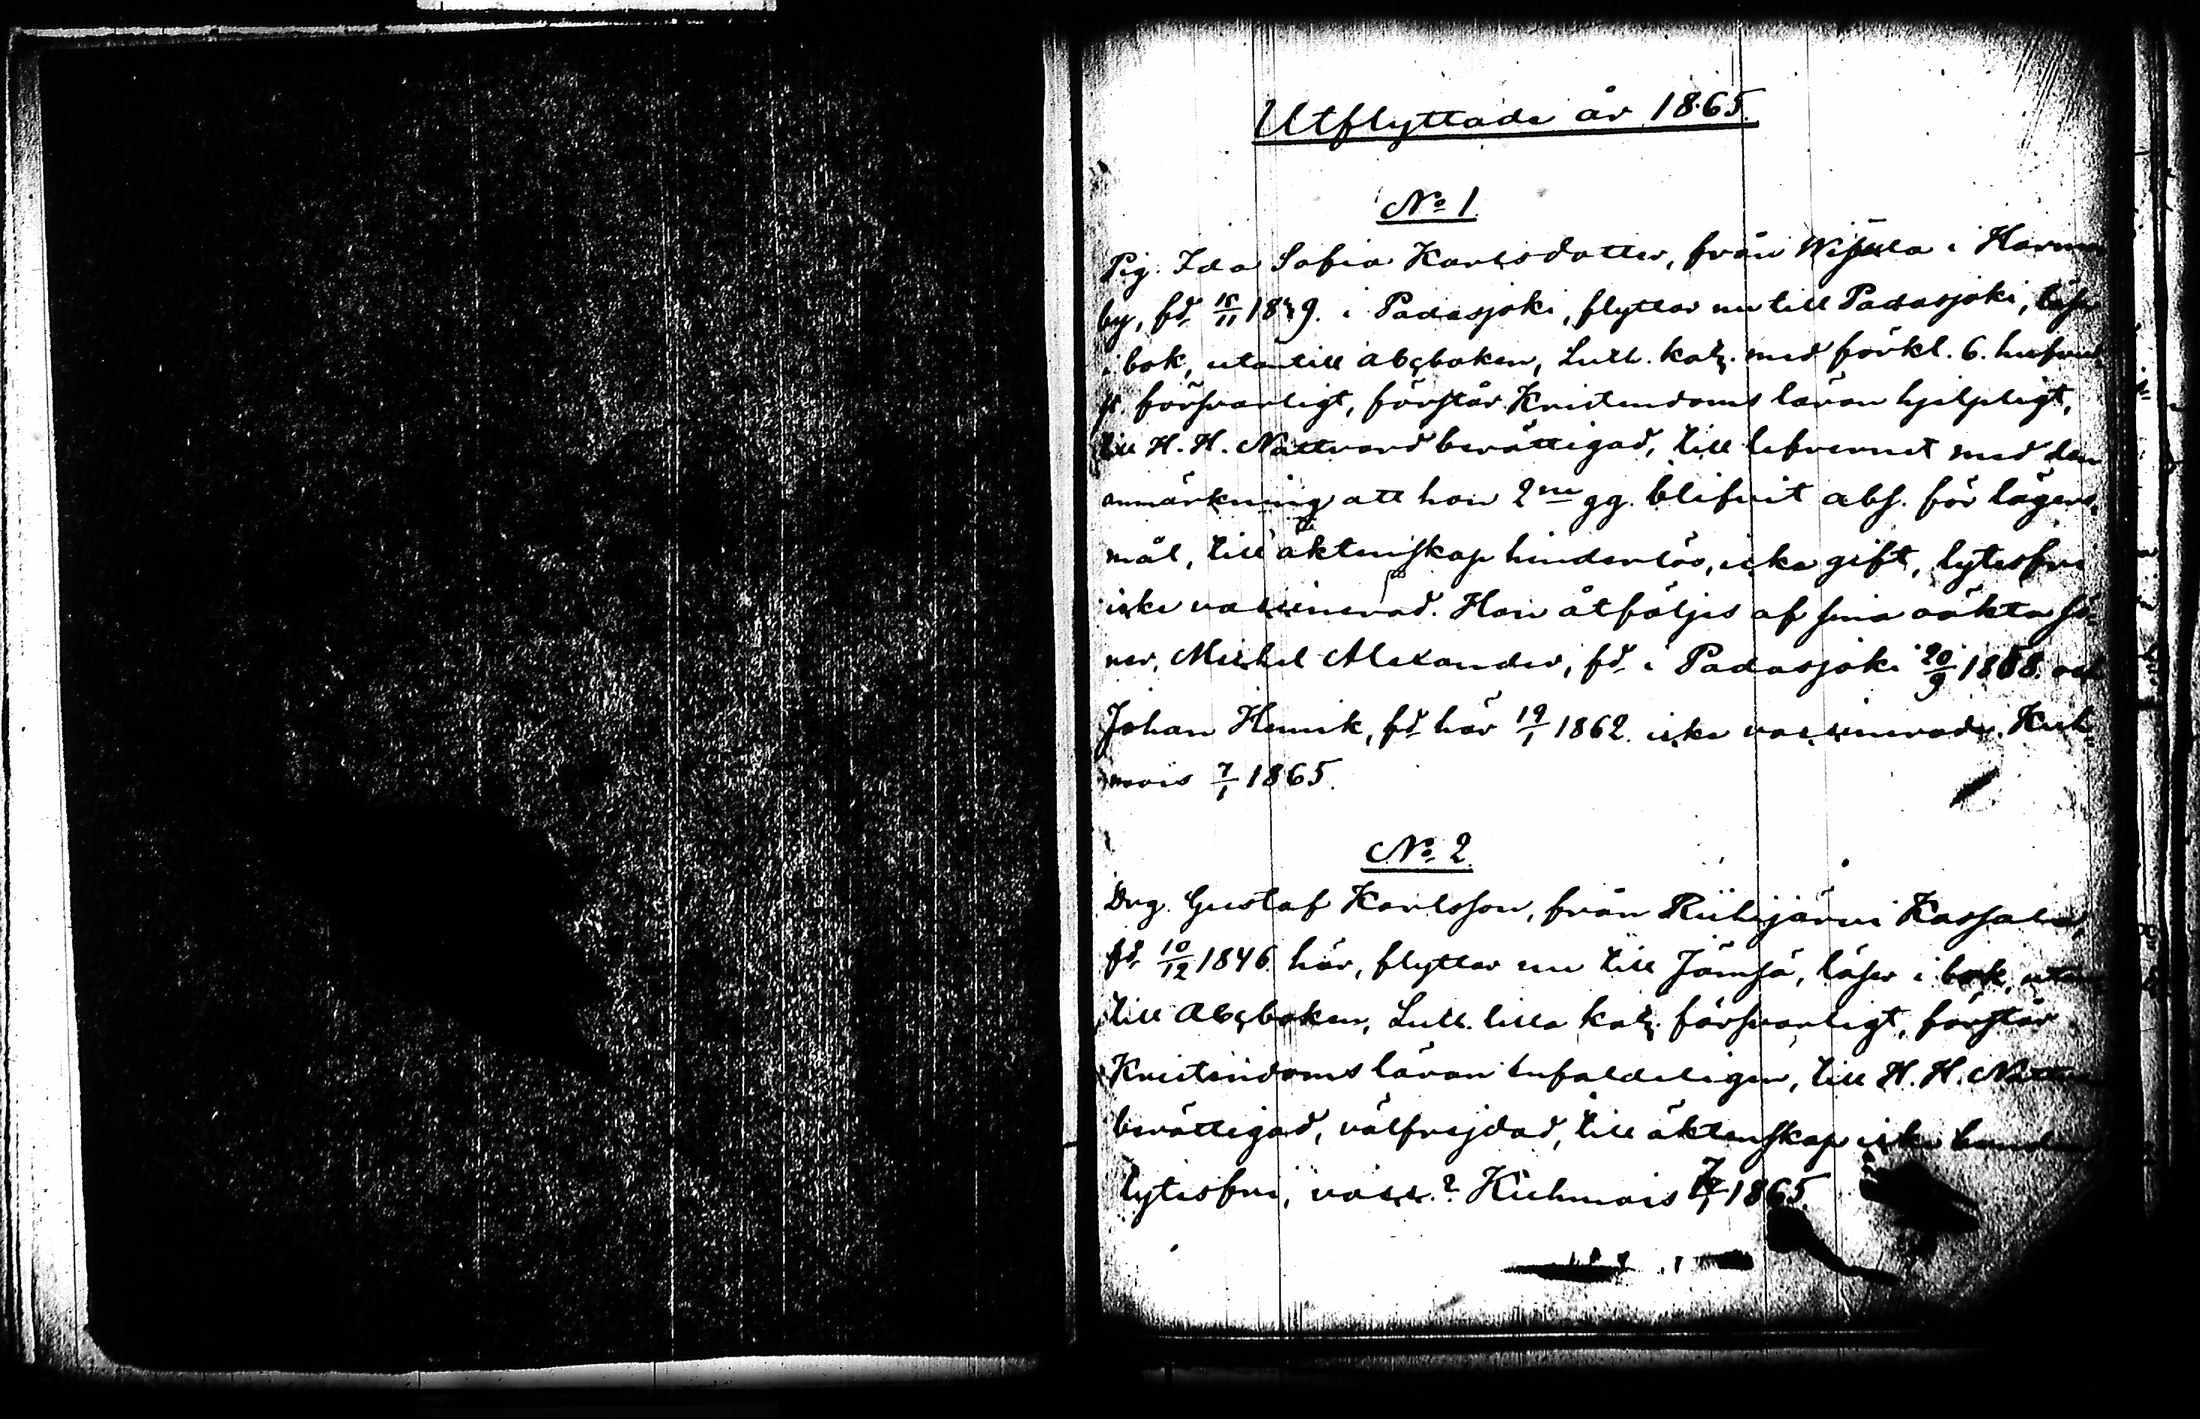 Utflyttade år 1865.
No 1
Pig. Ida Sofia Karlsdotter, från i
by, fd 15/11 18 9. i Padasjoki, flyttar nu till Padasjoki, läser
i bok, utantill abcboken, Luth. kat. med förkl. 6. hufvud
st. försvarligt, förstår Kristendoms läran hjelpligt,
till H. H. Nattvard berättigad, till lefvernet med den
anmärkning att hon 2ne gg. blifvit abs. för lägers-
mål, till äktenskap hinderlös, icke gift, lytesfri
icke vaccinerad. Hon åtföljes af sina oäkta sö-
ner, Michel Alexander, fd i Padasjoki 20/9 1858. och
Johan Henrik, fd här 19/1 1862. icke vaccinerade. Kuh-
mois 7/1 1865.
No 2.
Drg. Gustaf Karlsson, från Riihijärvi Kassala,
fd 10/12 1846. här, flyttar nu till Jämsä, läser i bok, utan
till Abcboken, Luth. lilla kat. försvarligt, förstår
Kristendoms läran enfaldeligen, till H. H. Nattv
berättigad, välfrejdad, till äktenskap icke bunden
lytesfri, vacc.? Kuhmois 1865.